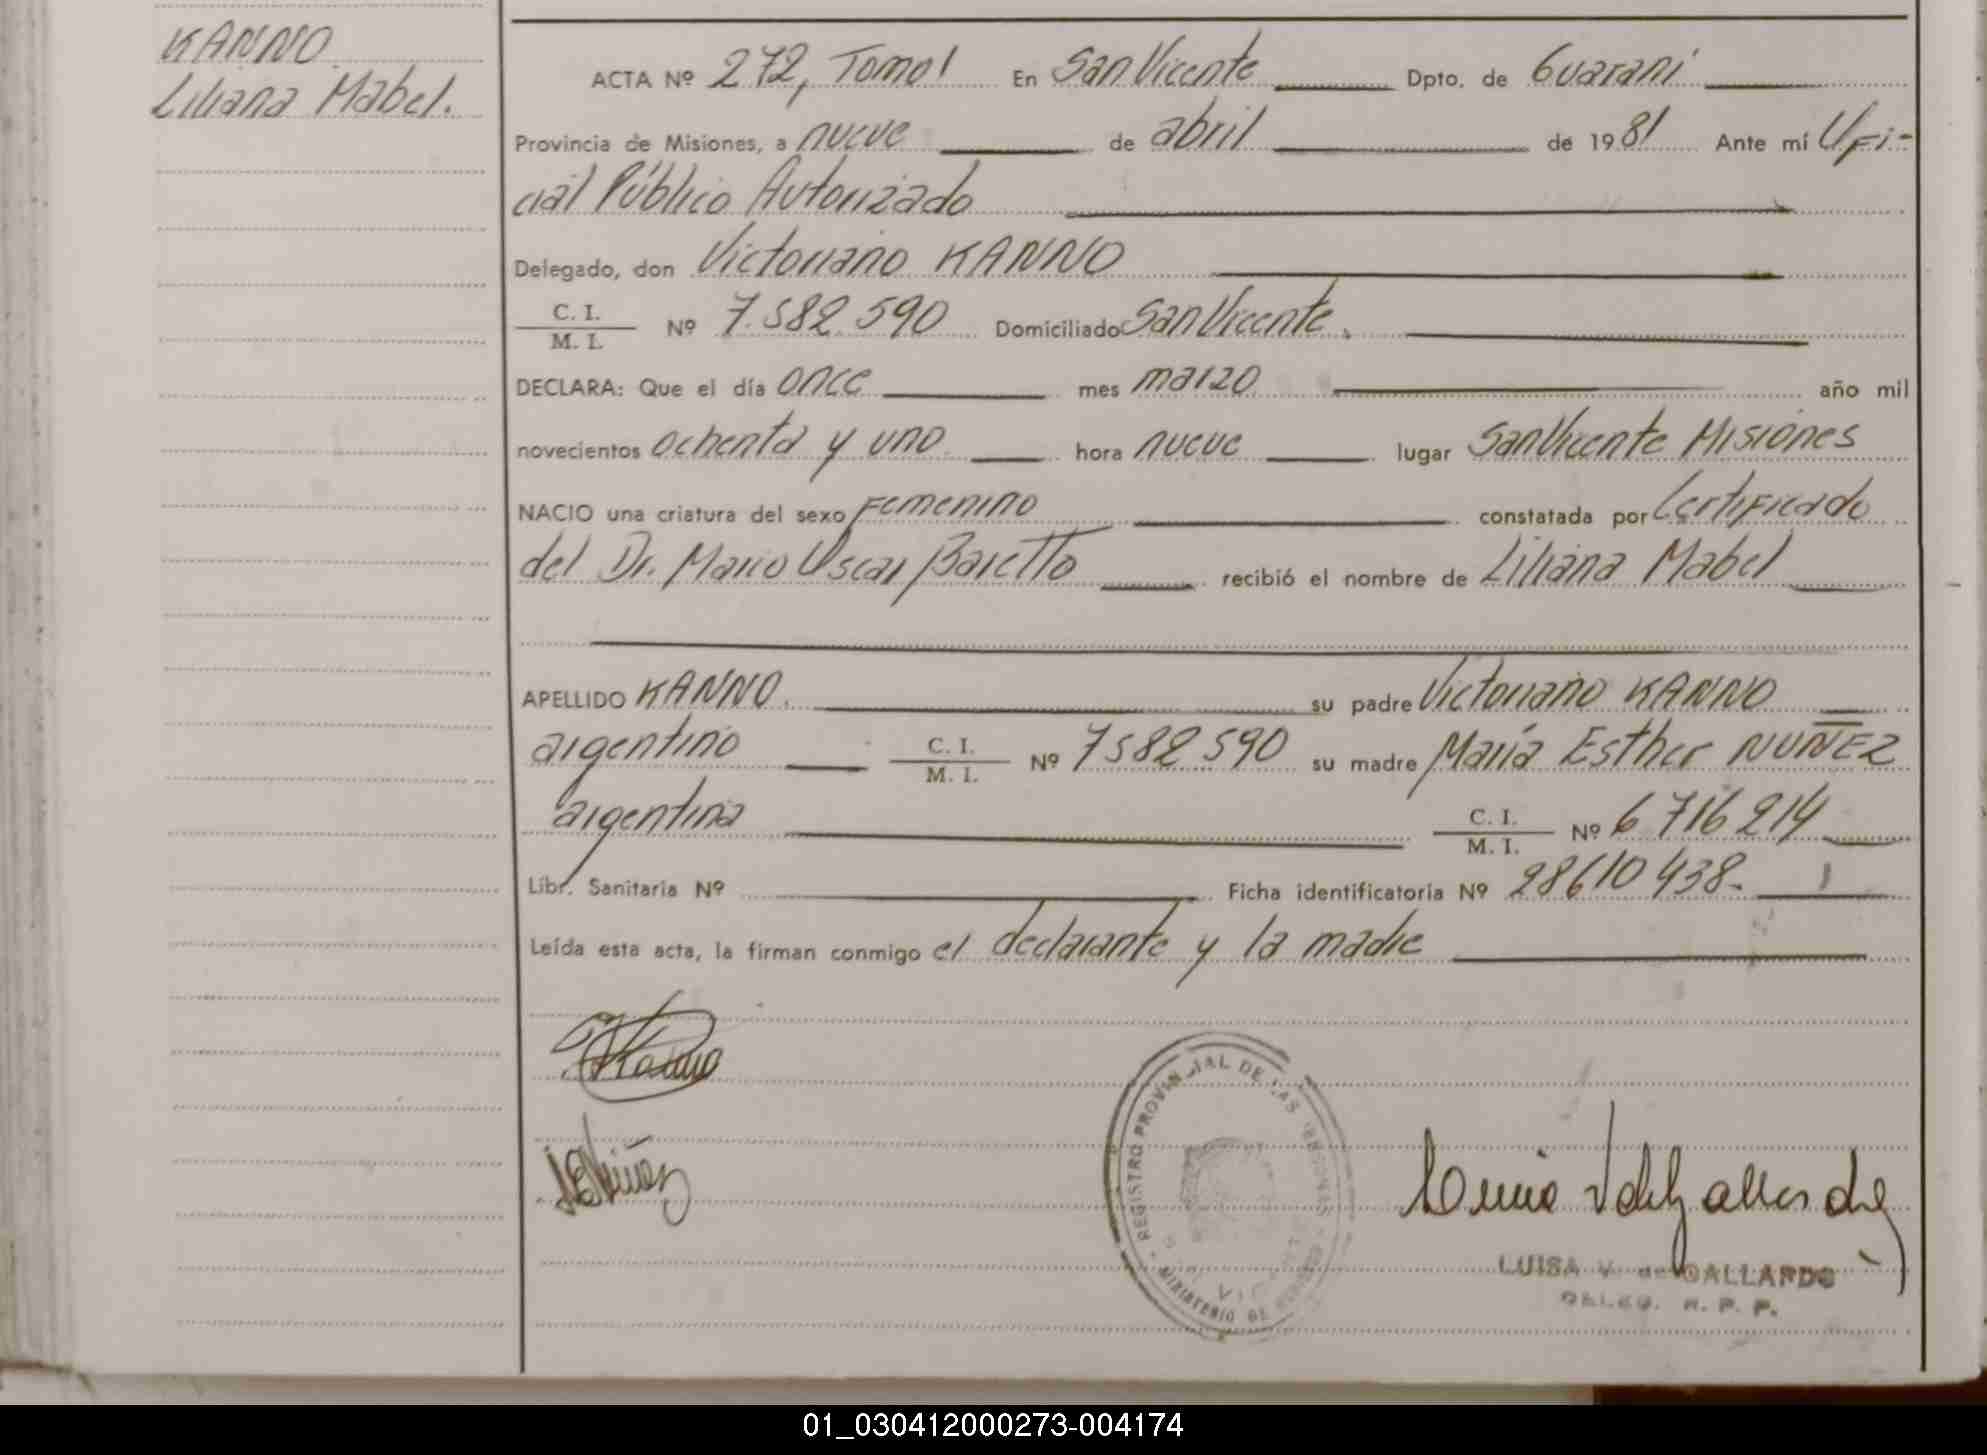 KANNO
Liliana Mabel.
ACTA Nº 272, Tomo I En San Vicente Dpto. de Guaraní
Provincia de Misiones, a nueve de abril de 1981 Ante mí Ofi-
cial Público Autorizado
Delegado, don Victoriano KANNO
C. I.
M. I.
Nº 7.582.590 Domiciliado San Vicente.
DECLARA: Que el día once mes marzo año mil
novecientos ochenta y uno hora nueve lugar San Vicente Misiones
NACIO una criatura del sexo Femenino constatada por Certificado
del Dr. Mario Oscar Baretto recibió el nombre de Liliana Mabel
APELLIDO KANNO. su padre Victoriano KANNO
argentino C. I. M. I. Nº 7582590 su madre María Esther NUÑEZ
argentina C. I. M. I. Nº 6716214
Libr. Sanitaria Nº Ficha identificatoria Nº 28610438-
Leída esta acta, la firman conmigo el declarante y la madre
REGISTRO PROVINCIAL DE LAS PERSONAS
MINISTERIO DE
LUISA V. de GALLARDO
DELEG. R. P. P.
01_030412000273-004174